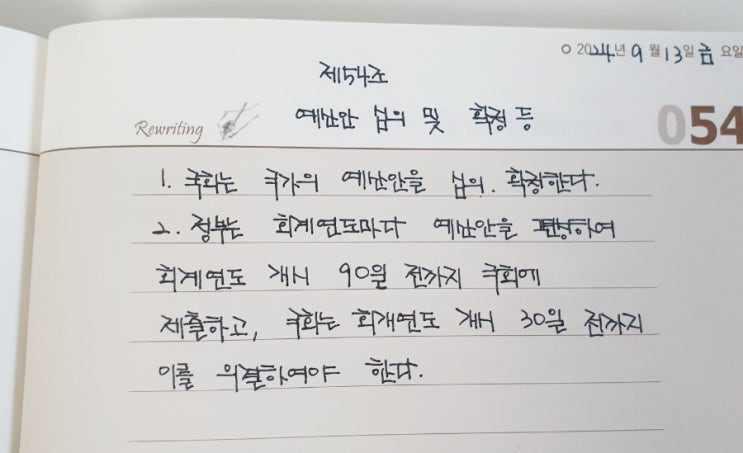 2024년 9월 13일 금요일
제54조
Rewriting
예산안 심의 및 확정 등
054
1. 국회는 국가의 예산안을 심의. 확정한다.
2. 정부는 회계연도마다 예산안을 편성하여
회계연도 개시 90일 전까지 국회에
제출하고, 국회는 회계연도 개시 30일 전까지
이를 의결하여야 한다.